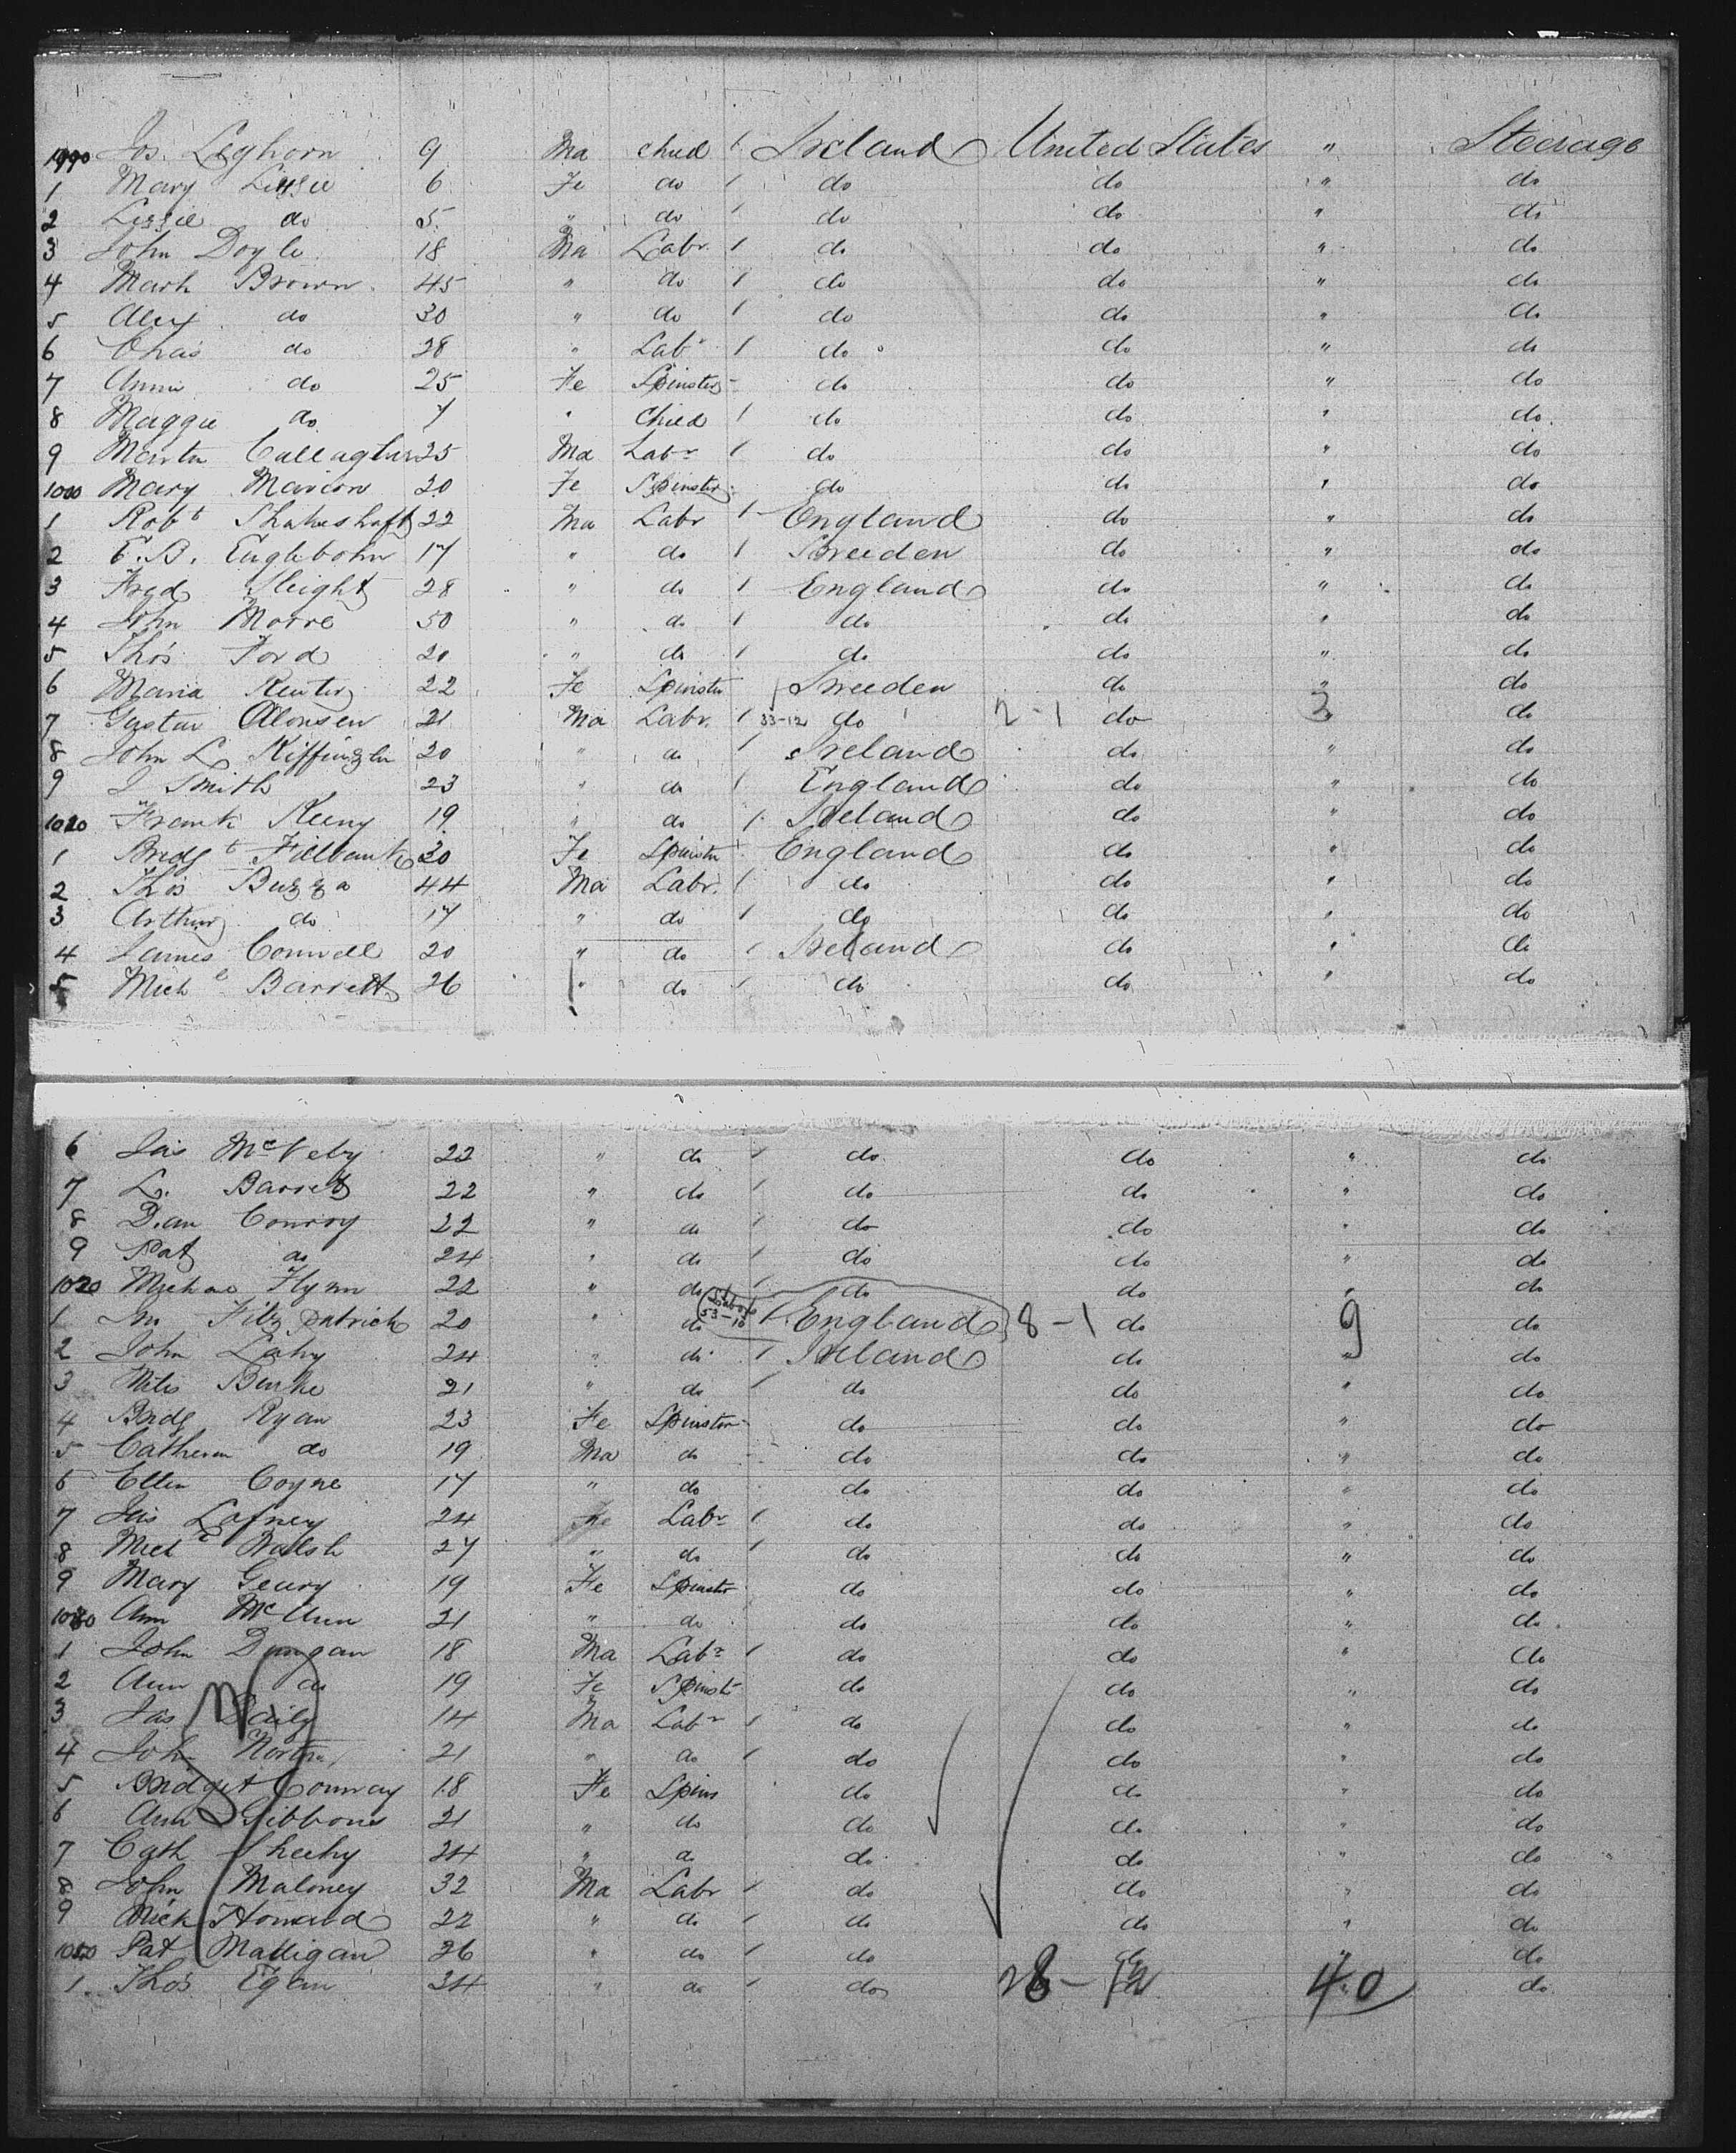 1990 Jos. Leghorn 9 Ma Child / Ireland United States " Steerage
1 Mary Lizzie 6 Fe do / do do " do
2 Lizzie do 5 " do / do do " do
3 John Doyle 18 Ma Labr. / do do " do
4 Mark Brown 45 " do / do do " do
5 Alex do 30 " do / do do " do
6 Chas do 28 " Labr / do do " do
7 Annie do 25 Fe Spinster do do " do
8 Maggie do 7 " Child / do do " do
9 Martin Callaghan 25 Ma Labr / do do " do
1000 Mary Marion 20 Fe Spinster do do " do
1 Robt Shakeshaft 22 Ma Labr / England do " do
2 E.B. Euglebohn 17 " do / Sweeden do " do
3 Fred Sleight 28 " do / England do " do
4 John Moore 50 " do / do do " do
5 Thos Ford 20 " do / do do " do
6 Maria Reuter 22 Fe Spinster Sweeden do " do
7 Gustav Alonsen 21 Ma Labr. / 33-12 do 2-1 do 3 do
8 John L 20 " do / Ireland do " do
9 J Smith 23 " do / England do " do
1010 Frank Keeny 19 " do / Ireland do " do
1 Bridgt Fillbank 30 Fe Spinstr England do " do
2 Thos Buzza 44 Ma Labr. / do do " do
3 Arthur do 17 " do / do do " do
4 James Connell 20 " do / Ireland do " do
5 Michl Barrett 26 " do / do do " do
6 Jas McVeby 22 " do / do do " do
7 L. Barrett 22 " do / do do " do
8 Dan Conroy 22 " do / do do " do
9 Pat do 24 " do / do do " do
1020 Michae Flynn 22 " do / do do " do
1 Jno Fitzpatrick 20 " do Labor 53-10 / England 8-1 do 9 do
2 John Lahy 24 " do / Ireland do " do
3 Miles Burke 21 " do / do do " do
4 Bridg Ryan 23 Fe Spinster do do " do
5 Catherin do 19 Ma do do do " do
6 Ellen Coyne 17 " do do do " do
7 Jas Lafney 24 Fe Labr / do do " do
8 Michl Walsh 27 " do / do do " do
9 Mary Geary 19 Fe Spinstr do do " do
1030 Ann McCunn 21 " do do do " do
1 John Dungan 18 Ma Labr / do do " do
2 Ann do 19 Fe Spinst do do " do
3 Jas Daily 14 Ma Labr / do do " do
4 John Norton 21 " do / do do " do
5 Bridget Conway 18 Fe Spins do do " do
6 Ann Gibbons 21 " do do do " do
7 Cath Sheehy 24 " do do do " do
8 John Maloney 32 Ma Labr / do do " do
9 Mick Howard 22 " do / do do " do
1040 Pat Malligan 26 " do / do do " do
1 Thos Egan 24 " do / do 28-12 40 do